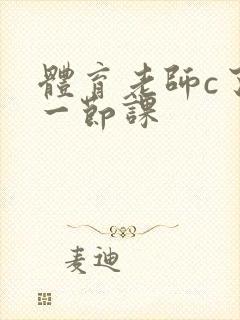 體育老師c了
一節課
麦迪